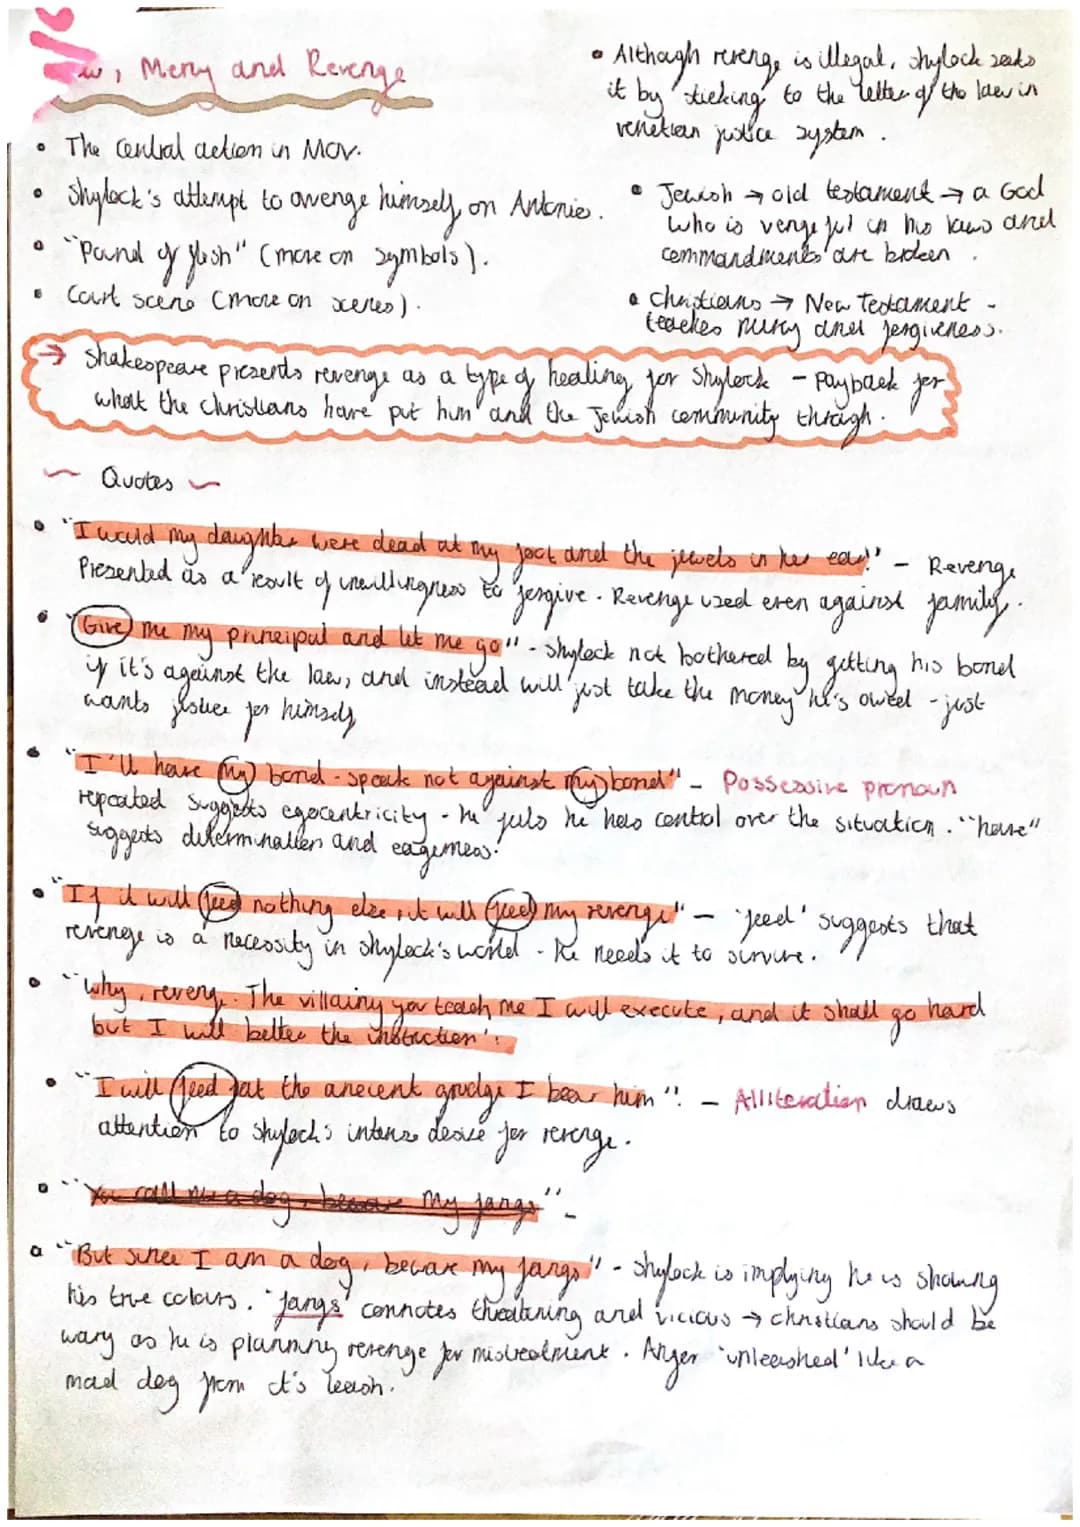 Mercy and Revenge
• The central action in MOV.
• Shylock's attempt to avenge himself on Antonio.
• "Pound of flesh" (more on symbols).
• Court scene (more on scenes).
• Although revenge is illegal, shylock seeks
it by 'sticking' to the letter of the law in
venetian justice system.
• Jewish → old testament → a God
who is vengeful in his laws and
commandments are broken.
• Christians → New Testament -
teaches mercy and forgiveness.
→ Shakespeare presents revenge as a type of healing for Shylock - Payback for
what the Christians have put him and the Jewish community through.
~ Quotes ~
• "I would my daughter were dead at my foot and the jewels in her ear!" - Revenge
Presented as a result of unwillingness to forgive. Revenge used even against family.
• "Give me my principal and let me go" - shylock not bothered by getting his bond
if it's against the law, and instead will just take the money he's owed - just
wants justice for himself
• "I'll have my bond - speak not against my bond" - Possessive pronoun
repeated suggests egocentricity - he feels he has control over the situation. "have"
suggests determination and eagerness.
• "If it will feed nothing else, it will feed my revenge" - 'feed' suggests that
revenge is a necessity in shylock's world - he needs it to survive.
• "Why, revenge. The villainy you teach me I will execute, and it shall go hard
but I will better the instruction".
• "I will feed fat the anecent grudge I bear him". - Alliteration draws
attention to shylock's intense desire for revenge.
• "You call me a dog, beware my fangs" -
• "But since I am a dog, beware my fangs" - shylock is implying he is showing
his true colours. 'fangs' connotes threatening and vicious → christians should be
wary as he is planning revenge for mistreatment. Anger 'unleashed' like a
mad dog from it's leash.